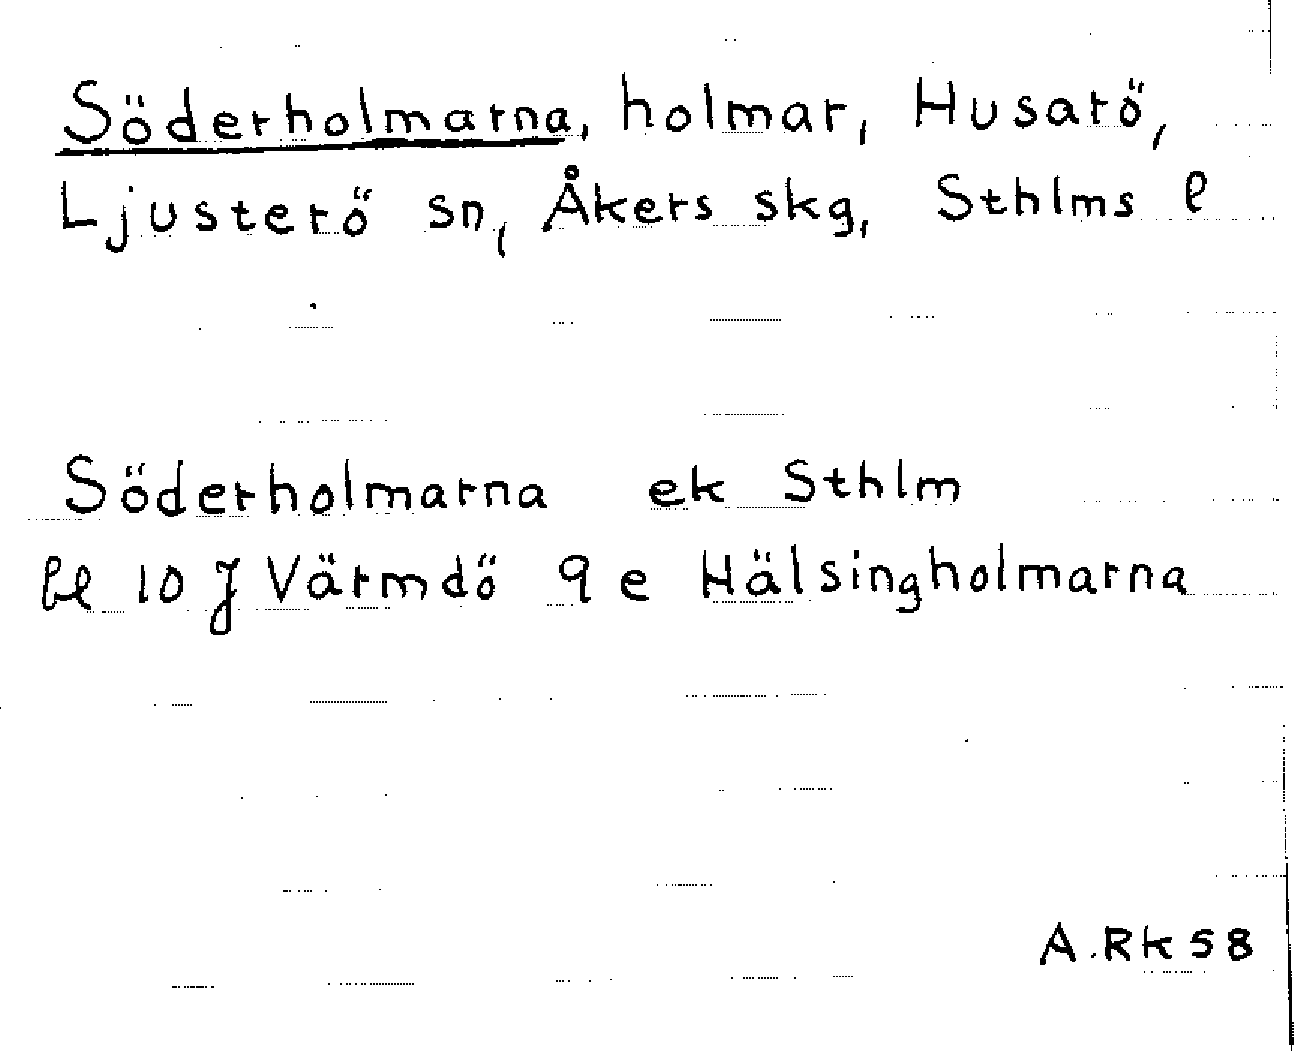 Söderholmarna, holmar, Husarö,
Ljusterö sn, Åkers skg, Sthlms l
Söderholmarna ek Sthlm
bl 10 J Värmdö 9 e Hälsingholmarna
A.Rk 58